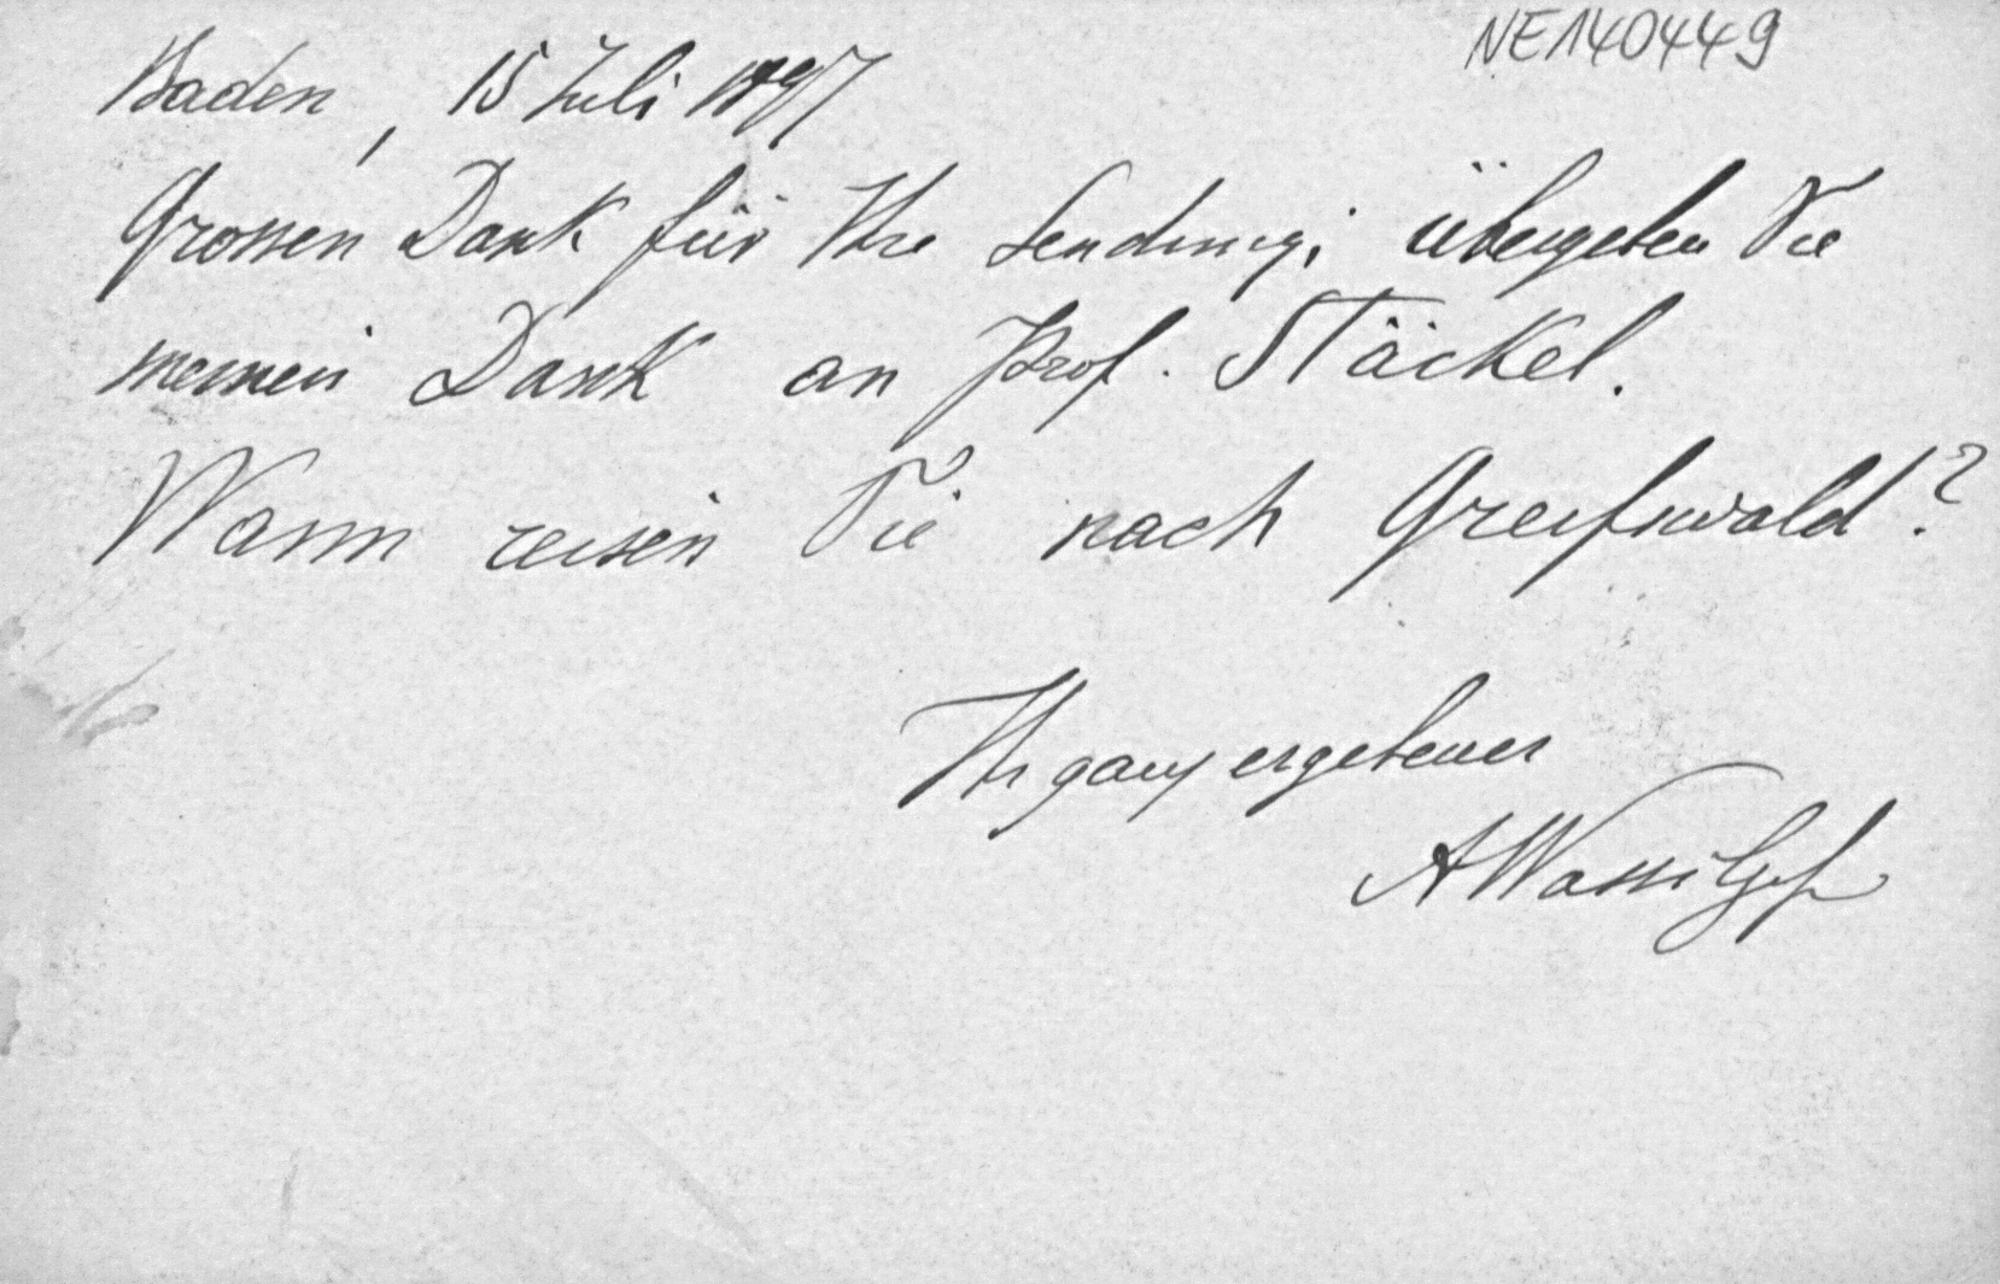 NE140449
Baden, 15 Juli 1897
Grossen Dank für Ihre Sendung; übergeben Sie
meinen Dank an Prof. Stäckel.
Wann reisen Sie nach Greifswald?
Ihr ganz ergebener
AWassiljef